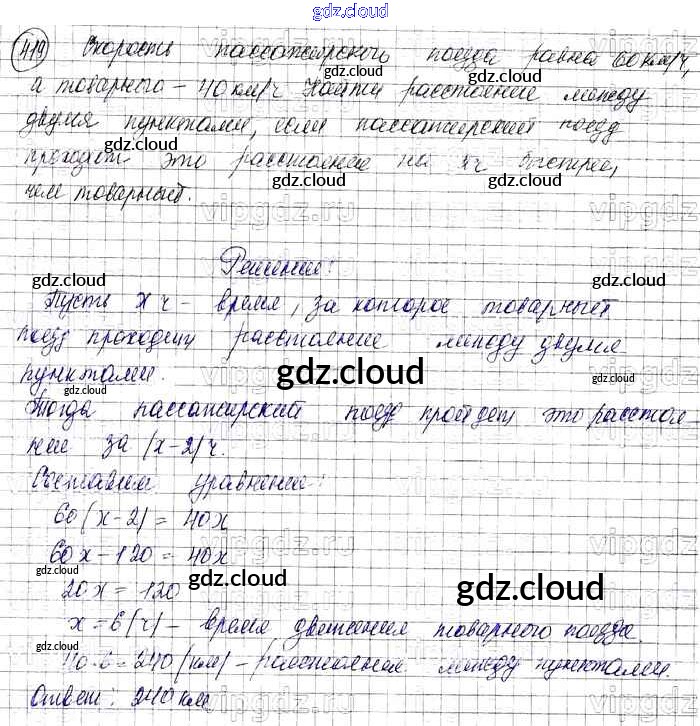 gdz.cloud
419 Скорость пассажирского поезда равна 60 км/ч,
gdz.cloud
а товарного – 40 км/ч. Найти расстояние между
двумя пунктами, если пассажирский поезд
проходит это расстояние на 2ч быстрее,
gdz.cloud gdz.cloud
чем товарный.
vipgdz.ru vipgdz
Решение:
gdz.cloud gdz.cloud
Пусть x ч – время, за которое товарный
поезд проходит расстояние между двумя
пунктами.
gdz.cloud
Тогда пассажирский поезд пройдет это расстоя-
ние за (x-2) ч.
gdz.cloud
Составим уравнение:
60(x-2) = 40x
60x-120 = 40x
gdz.cloud gdz.cloud gdz.cloud
20x = 120
x = 6 (ч) – время движения товарного поезда.
gdz.cloud gdz.cloud
40·6=240 (км) – расстояние между пунктами.
Ответ: 240 км
gdz.cloud